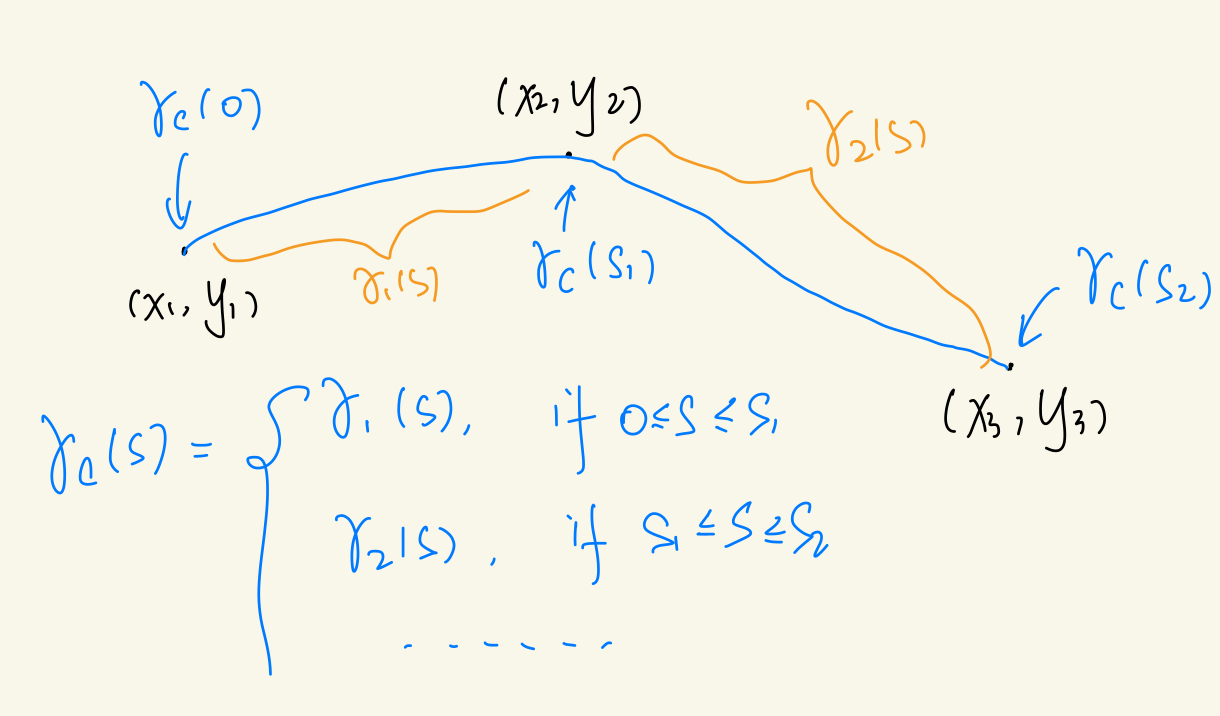 γc(0)
(x2, y2)
γ2(s)
γ1(s)
γc(s1)
γc(s2)
(x1, y1)
(x3, y3)
γc(s) = { γ1(s), if 0 ≤ s ≤ s1
γ2(s), if s1 ≤ s ≤ s2
......